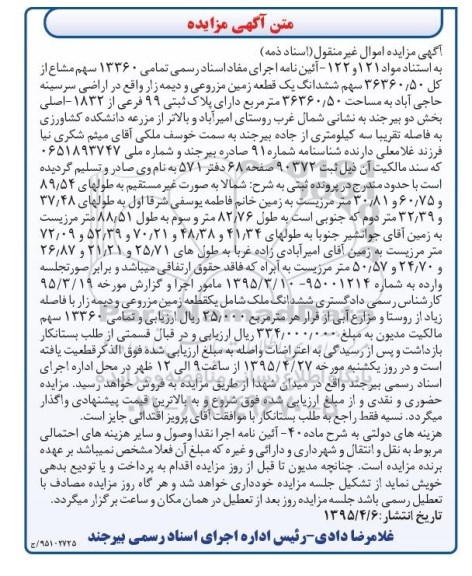 متن آگهی مزایده
آگهی مزایده اموال غیرمنقول(اسناد ذمه)
به استناد مواد ۱۲۱ و ۱۲۲-آئین نامه اجرای مفاد اسناد رسمی تمامی ۱۳۳۶۰ سهم مشاع از
کل ۳۶۳۶۰/۵۰ سهم ششدانگ یک قطعه زمین مزروعی و دیمه زار واقع در اراضی سرسینه
حاجی آباد به مساحت ۳۶۳۶۰/۵۰ متر مربع دارای پلاک ثبتی ۹۹ فرعی از ۱۸۳۲-اصلی
بخش دو بیرجند به نشانی شمال غرب روستای امیرآباد و بالاتر از مزرعه دانشکده کشاورزی
به فاصله تقریبا سه کیلومتری از جاده بیرجند به سمت خوسف ملکی آقای میثم شکری نیا
فرزند غلامعلی دارنده شناسنامه شماره ۹۱ صادره بیرجند و شماره ملی ۰۶۵۱۸۹۳۷۴۷
که سند مالکیت آن ذیل ثبت ۹۰۳۷۲ صفحه ۶۸ دفتر ۵۷۱ به نام وی صادر و تسلیم گردیده
است با حدود مندرج در پرونده ثبتی به شرح: شمالا به صورت غیر مستقیم به طولهای ۸۹/۵۴
و ۶۰/۷۵ و ۳۰/۸۱ متر مرزیست به زمین خانم فاطمه یوسفی شرقا اول به طولهای ۳۷/۴۸
و ۳۲/۳۹ متر دوم که جنوبی است به طول ۸۲/۷۶ متر و سوم به طول ۸۸/۵۱ متر مرزیست
به زمین آقای جوانشیر جنوبا به طولهای ۴۱/۳۴ و ۴۸/۳۸ و ۷۰/۲۱ و ۵۲/۳۹ و ۷۲/۰۹
متر مرزیست به زمین آقای امیرآبادی زاده غربا به طول های ۲۵/۷۱ و ۲۱/۲۱ و ۲۶/۸۷
و ۲۴/۷۰ و ۵۰/۵۷ متر مرزیست به آبراه که فاقد حقوق ارتفاقی میباشد و برابر صورتجلسه
وارده به شماره ۹۵۰۰۱۲۱۴-۱۳۹۵/۳/۱۰ مامور اجرا و گزارش مورخه ۹۵/۳/۱۹
کارشناس رسمی دادگستری ششدانگ ملک شامل یکقطعه زمین مزروعی و دیمه زار با فاصله
زیاد از روستا و مزارع آبی از قرار هر متر مربع ۲۵/۰۰۰ ریال ارزیابی و تمامی ۱۳۳۶۰ سهم
مالکیت مدیون به مبلغ ۳۳۴/۰۰۰/۰۰۰ ریال ارزیابی و در قبال قسمتی از طلب بستانکار
بازداشت و پس از رسیدگی به اعتراضات واصله به مبلغ ارزیابی شده فوق الذکر قطعیت یافته
است و در روز یکشنبه مورخه ۱۳۹۵/۴/۲۷ از ساعت ۹ الی ۱۲ ظهر در محل اداره اجرای
اسناد رسمی بیرجند واقع در میدان شهدا از طریق مزایده به فروش خواهد رسید. مزایده
حضوری و نقدی و از مبلغ ارزیابی شده فوق شروع و به بالاترین قیمت پیشنهادی واگذار
میگردد. نسیه فقط راجع به طلب بستانکار با موافقت آقای پرویز اقتدائی جایز است.
هزینه های دولتی به شرح ماده ۴۰- آئین نامه اجرا نقدا وصول و سایر هزینه های احتمالی
مربوط به نقل و انتقال و شهرداری و دارائی و غیره که مبلغ آن فعلا مشخص نمیباشد بر عهده
برنده مزایده است. چنانچه مدیون تا قبل از روز مزایده اقدام به پرداخت و یا تودیع بدهی
خویش نماید از تشکیل جلسه مزایده خودداری خواهد شد و هر گاه روز مزایده مصادف با
تعطیل رسمی باشد جلسه مزایده روز بعد از تعطیل در همان مکان و ساعت برگزار میگردد.
تاریخ انتشار: ۱۳۹۵/۴/۶
غلامرضا دادی-رئیس اداره اجرای اسناد رسمی بیرجند
۹۵۱۰۲۷۲۵/ج